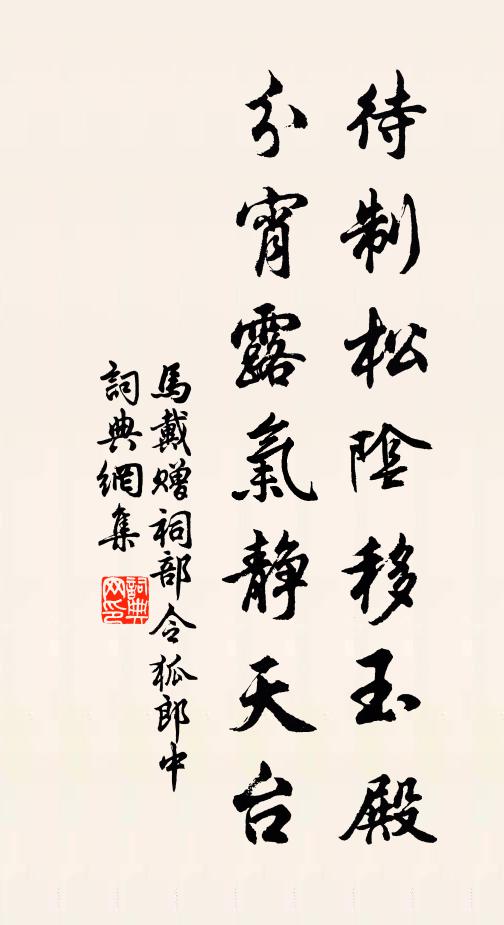 待制松陰移玉殿
分宵露氣靜天台
馬戴贈祠部令狐郎中
詞典網集
詞典網印